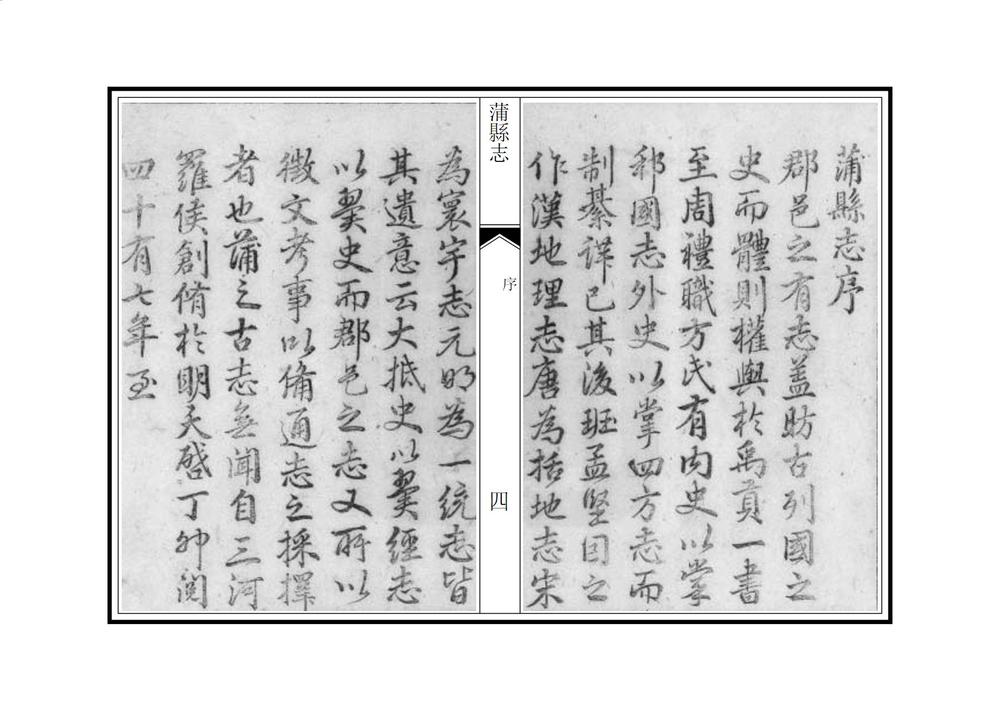 蒲縣志序
郡邑之有志蓋昉古列國之
史而體則權輿於禹貢一書
至周禮職方氏有內史以掌
邦國志外史以掌四方志而
制綦詳已其後班孟堅因之
作漢地理志唐為括地志宋
蒲縣志
序
四
為寰宇志元明為一統志皆
其遺意云大抵史以翼經志
以翼史而郡邑之志又所以
徵文考事以備通志之採擇
者也蒲之古志無聞自三河
羅侯創脩於明天啓丁卯閱
四十有七年至